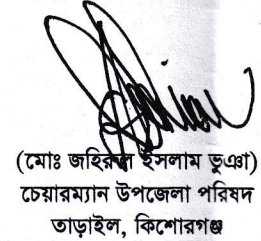 (মোঃ জহিরুল ইসলাম ভুঞা)
চেয়ারম্যান উপজেলা পরিষদ
তাড়াইল, কিশোরগঞ্জ